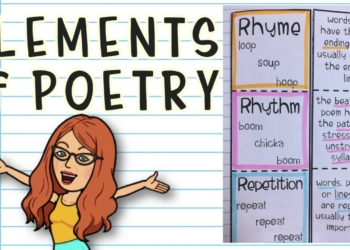 LEMENTS
f POETRY
Rhyme
loop
soup
hoop
words
have th
ending
usually
the en
li
Rhythm
boom
chicka
boom
the bea
poem h
the pat
stress
unst
sylla
Repetition
repeat
repeat
repeat
words, p
or lines
are rep
usually t
impor